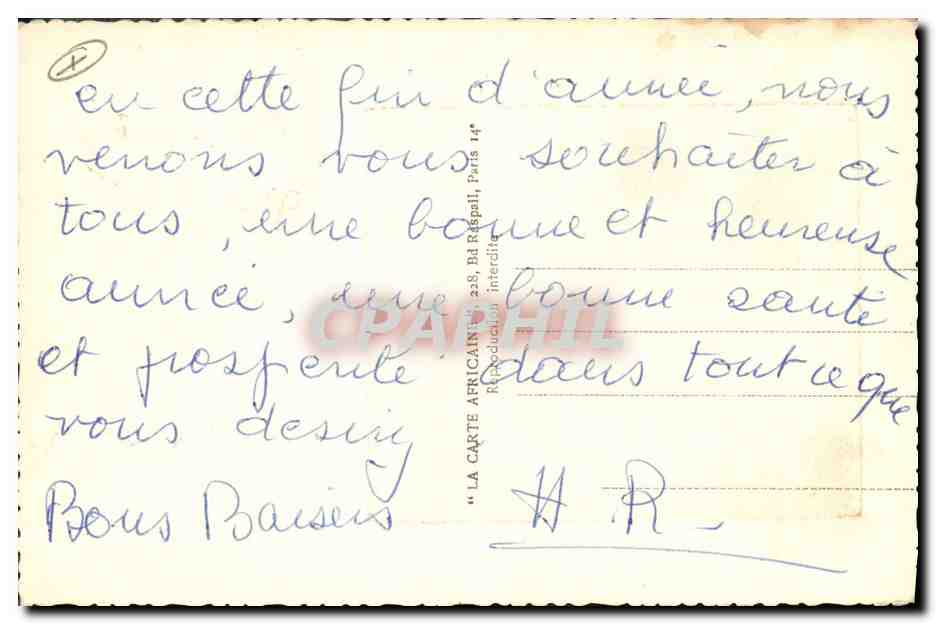 X
en cette fin d'année, nous
venons vous souhaiter à
tous, une bonne et heureuse
année, une bonne santé
et prosperité dans tout ce que
vous desirez
Bons Baisers H R
"LA CARTE AFRICAINE", 228, Bd Raspail, Paris 14e
Reproduction interdite
CPAPHIL